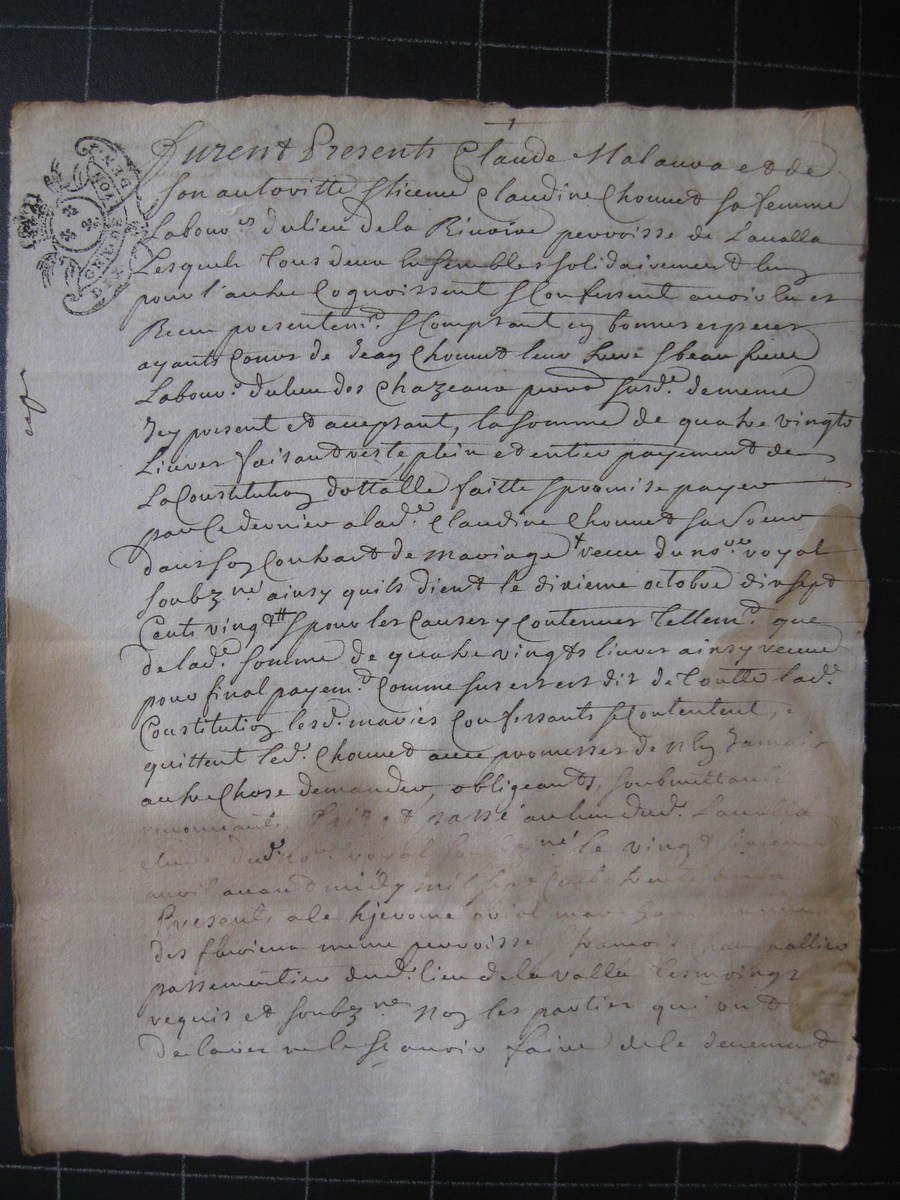 Furent Presents Claude Malauva et de
son autoritte & licence Claudine Chonnet sa femme
Labour.rs du lieu de la Rivoire parroisse de Lavalla
Lesquels tous deux Ensembles solidairement lung
pour l'autre Cognoissent & Confessent avoir heu et
Receu presentem.t & Comptant en bonnes especes
ayants Cours de Jean Chonnet leur frere & beau frere
Labour.r du lieu des Chazeaux parro susd.e de meme
Icy present et acceptant, la somme de quatre vingts
Livres faisant reste, plein et entier payement de
La Constitution dottalle faitte & promise payer
par Ce dernier a lad.e Claudine Chonnet sa Soeur
dans son Contract de mariage receu du no.re royal
soubz.né ainsy quils dient le dixieme octobre dix sept
Cents vingt & pour les Causes y Contenues Tellem.t que
de lad.e somme de quatre vingts livres ainsy receue
pour final payem.t Comme sus est dit de toutte lad.e
Constitution lesd. mariés Confessants se Contentent, &
quittent led. Chonnet avec promesses de n'en Jamais
autre Chose demander, obligeants, soubmettants
renonceants, fait et passé au lieu dud. Lavalla
etude dud. no.re royal soubz.né le vingt
avril avant midy mil sept Cent trente
Presents a le hjerome
des flavieux meme parroisse & francois
passementier dud. lieu de la valla tesmoings
requis et soubz.nés Non les parties qui ont
declaré ne le sçavoir faire de ce deuement